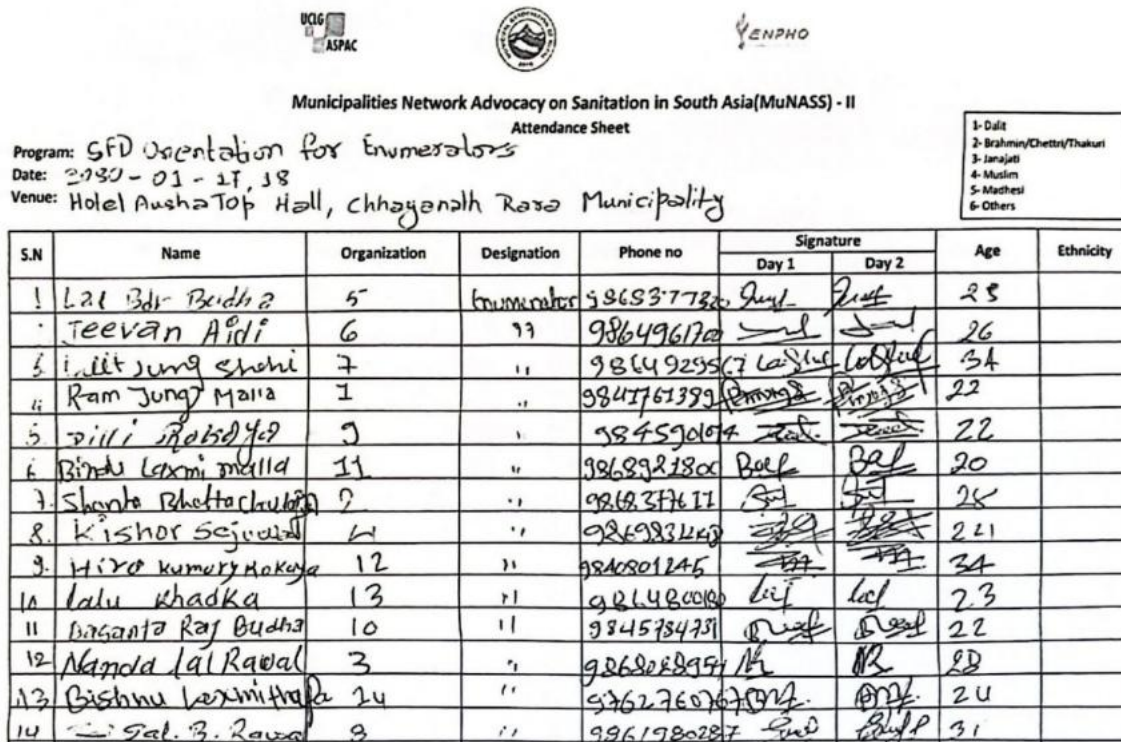 UCLG
ASPAC
ENPHO
Municipalities Network Advocacy on Sanitation in South Asia(MuNASS) - II
Attendance Sheet
1- Dalit
2- Brahmin/Chettri/Thakuri
3- Janajati
4- Muslim
5- Madhesi
6- Others
Program: SFD Orientation for Enumerators
Date: 2080-01-17, 18
Venue: Hotel Ausha Top Hall, Chhayanath Rara Municipality
S.N Name Organization Designation Phone no Signature Age Ethnicity
Day 1 Day 2
1 Lal Bdr Budha 5 Enumerator
Jeevan Aidi 6 " 9864961700 26
Lalit Jung Shahi 7 " 9864929567 34
4 Ram Jung Malla 1 " 9841761389 22
5. Dilli 9 " 22
6 Bindu Laxmi malla 11 " 9868921800 20
7. Shanta 2 " 9868377611
8. Kishor 4 "
9. 12 " 9840801245 34
10 lalu Khadka 13 " 23
11 Basanta Raj Budha 10 " 9845784731 22
12 Nanda lal Rawal 3 " NR 28
13 Bishnu Laxmi thapa 14 " 9762760767 24
14 B. Rawal 8 " 9861980287 31